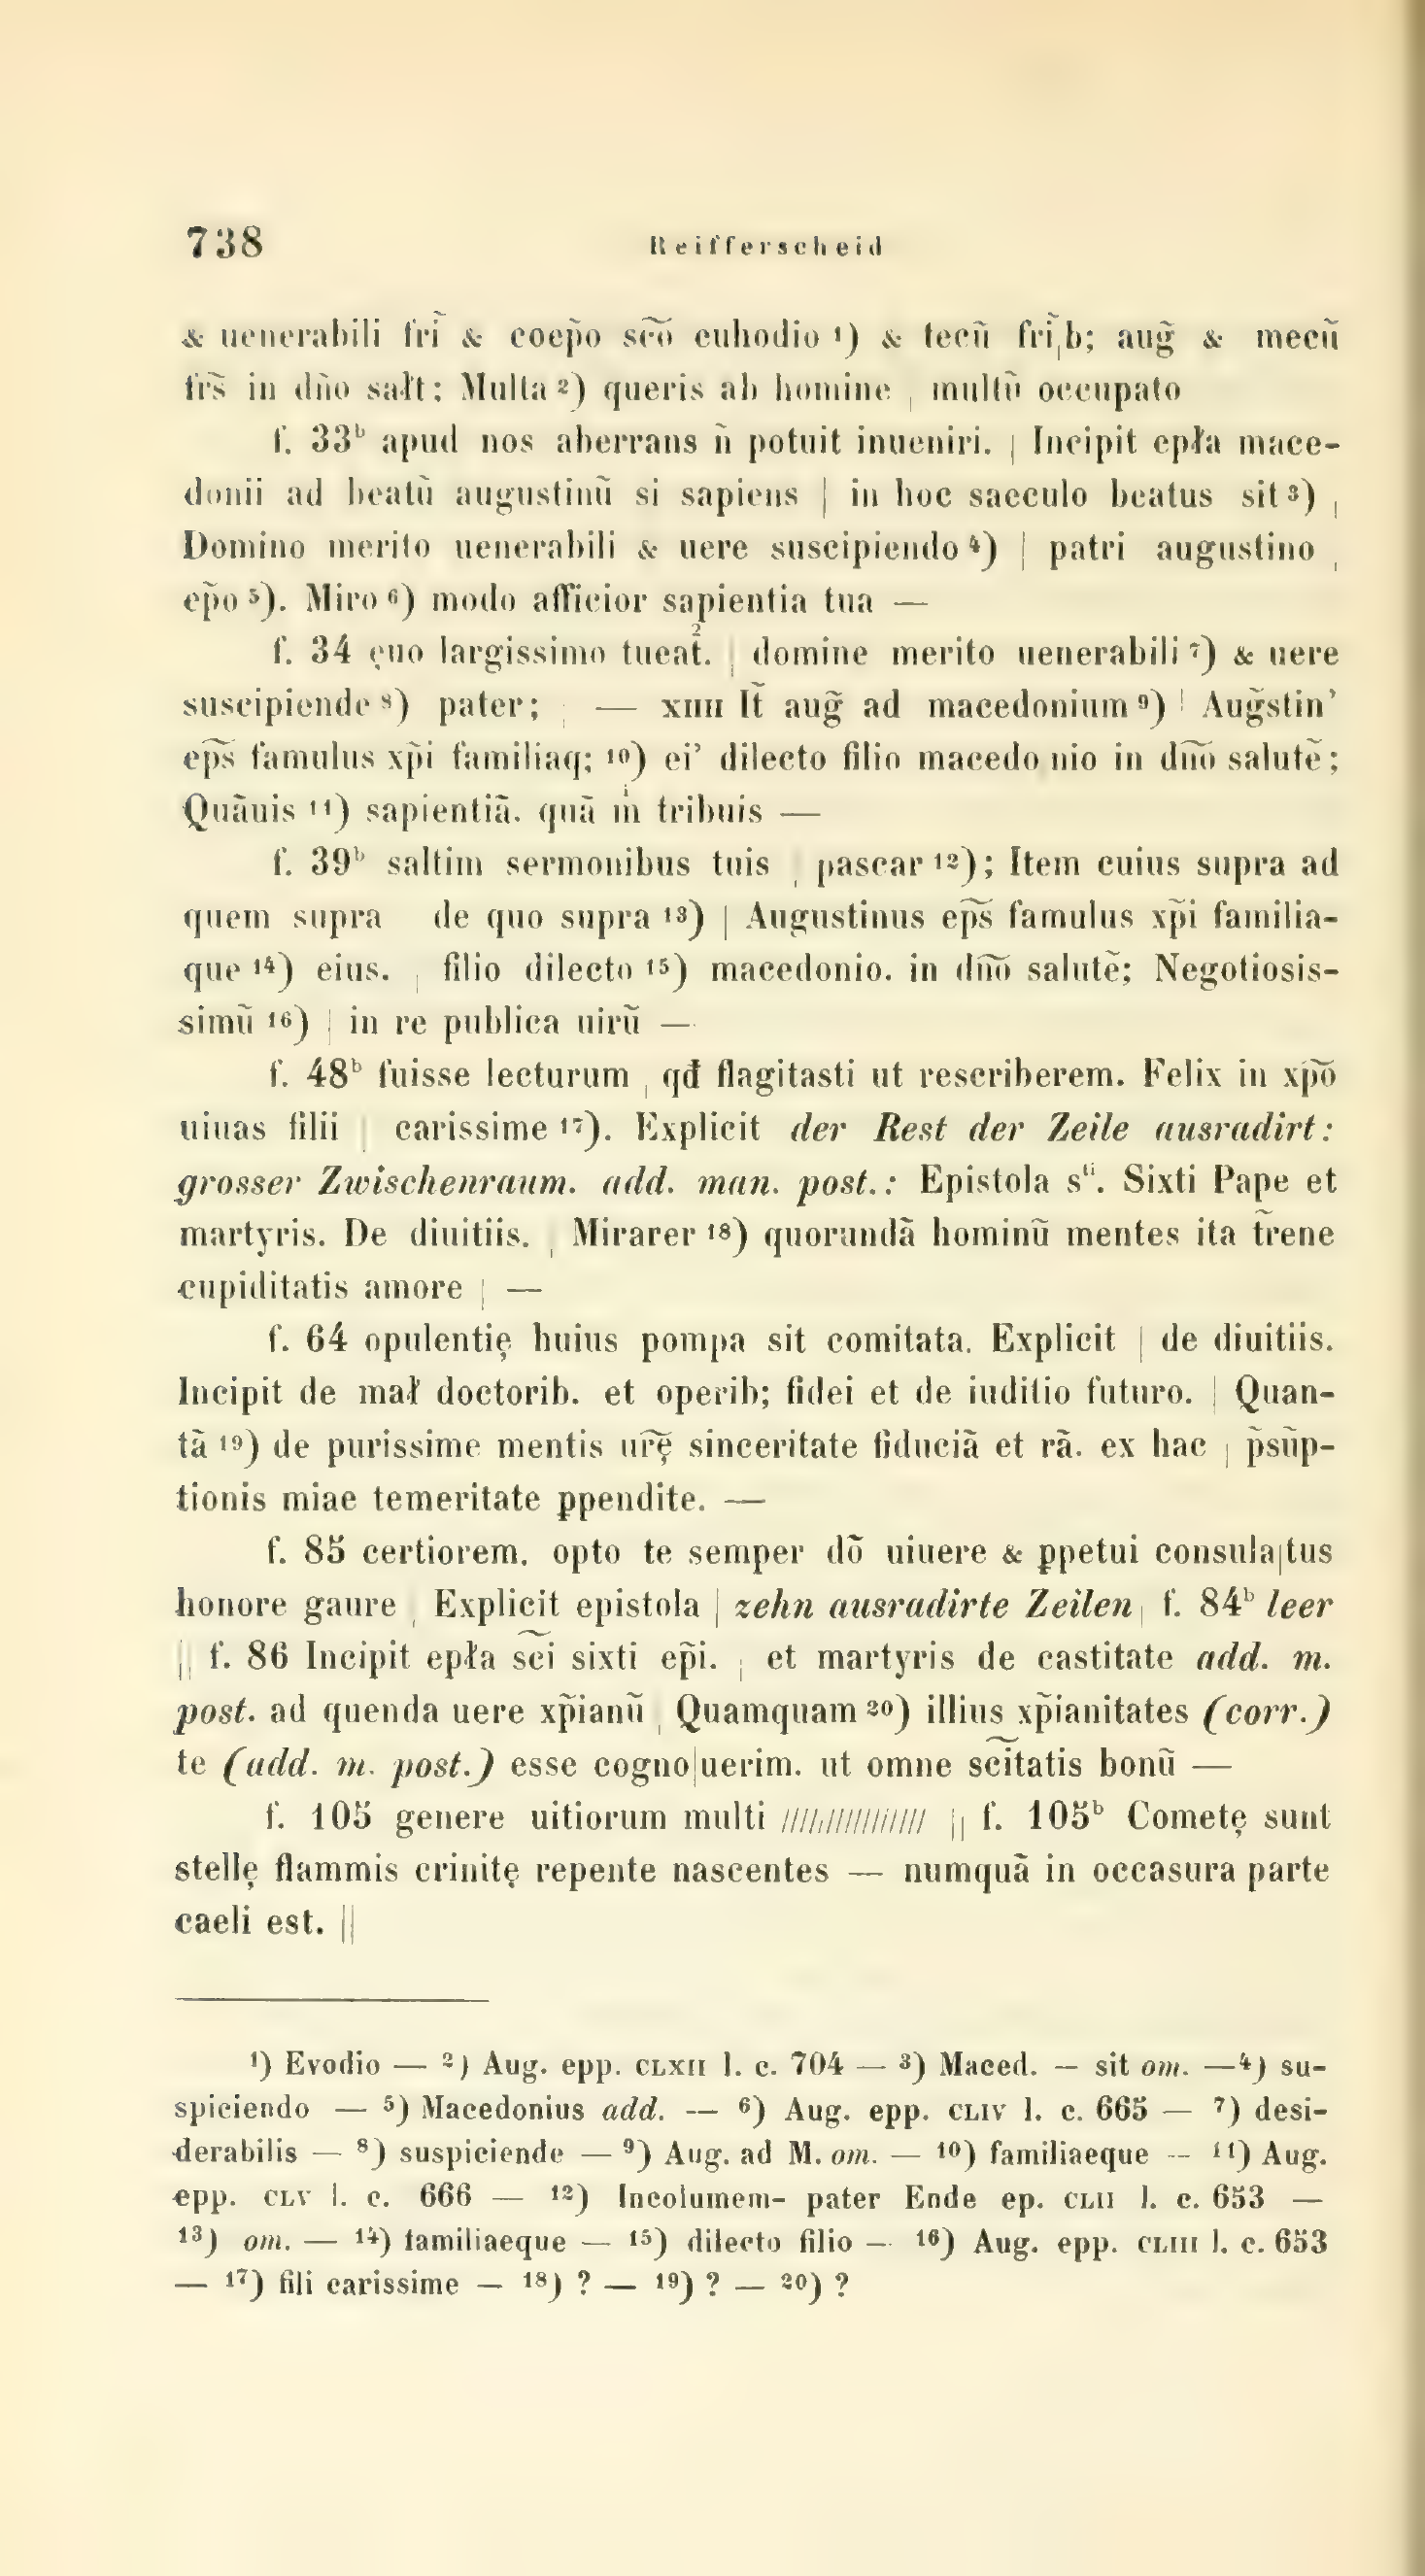 738 Reifferscheid
& uenerabili frĩ & coep̃o sc̃o euhodio ¹) & tecũ frĩ|b; aug̃ & mecũ
frs̃ in dño sałt; Multa ²) queris ab homine | multũ occupato
f. 33ᵇ apud nos aberrans ñ potuit inueniri. | Incipit epła mace-
donii ad beatũ augustinũ si sapiens | in hoc saeculo beatus sit ³) |
Domino merito uenerabili & uere suscipiendo ⁴) | patri augustino |
ep̃o ⁵). Miro ⁶) modo afficior sapientia tua —
f. 34 ęuo largissimo tueat̃. | domine merito uenerabili ⁷) & uere
suscipiende ⁸) pater; | — xıııı It̃ aug̃ ad macedonium ⁹) | Aug̃stin’
ep̃s famulus xp̃i familiaq; ¹⁰) ei’ dilecto filio macedo|nio in dño salutẽ;
Quãuis ¹¹) sapientiã. quã m̍ tribuis —
f. 39ᵇ saltim sermonibus tuis | pascar ¹²); Item cuius supra ad
quem supra de quo supra ¹³) | Augustinus ep̃s famulus xp̃i familia-
que ¹⁴) eius. | filio dilecto ¹⁵) macedonio. in dño salutẽ; Negotiosis-
simũ ¹⁶) | in re publica uirũ —
f. 48ᵇ fuisse lecturum | qđ flagitasti ut rescriberem. Felix in xp̃o
uiuas filii | carissime ¹⁷). Explicit der Rest der Zeile ausradirt:
grosser Zwischenraum. add. man. post.: Epistola sᵗⁱ. Sixti Pape et
martyris. De diuitiis. | Mirarer ¹⁸) quorundã hominũ mentes ita t̃rene
cupiditatis amore | —
f. 64 opulentię huius pompa sit comitata. Explicit | de diuitiis.
Incipit de mał doctorib. et operib; fidei et de iuditio futuro. | Quan-
tã ¹⁹) de purissime mentis ur̃ę sinceritate fiduciã et rã. ex hac | p̃sũp-
tionis miae temeritate ꝑpendite. —
f. 85 certiorem. opto te semper dõ uiuere & ꝑpetui consula|tus
honore gaure | Explicit epistola | zehn ausradirte Zeilen | f. 84ᵇ leer
|| f. 86 Incipit epła sc̃i sixti ep̃i. | et martyris de castitate add. m.
post. ad quenda uere xp̃ianũ | Quamquam ²⁰) illius xp̃ianitates (corr.)
te (add. m. post.) esse cogno|uerim. ut omne sc̃itatis bonũ —
f. 105 genere uitiorum multi /////////////// || f. 105ᵇ Cometę sunt
stellę flammis crinitę repente nascentes — numquã in occasura parte
caeli est. ||
¹) Evodio — ²) Aug. epp. CLXII l. c. 704 — ³) Maced. — sit om. —⁴) su-
spiciendo — ⁵) Macedonius add. — ⁶) Aug. epp. CLIV l. c. 665 — ⁷) desi-
derabilis — ⁸) suspiciende — ⁹) Aug. ad M. om. — ¹⁰) familiaeque — ¹¹) Aug.
epp. CLV l. c. 666 — ¹²) Incolumem- pater Ende ep. CLII l. c. 653 —
¹³) om. — ¹⁴) familiaeque — ¹⁵) dilecto filio — ¹⁶) Aug. epp. CLIII l. c. 653
— ¹⁷) fili carissime — ¹⁸) ? — ¹⁹) ? — ²⁰) ?